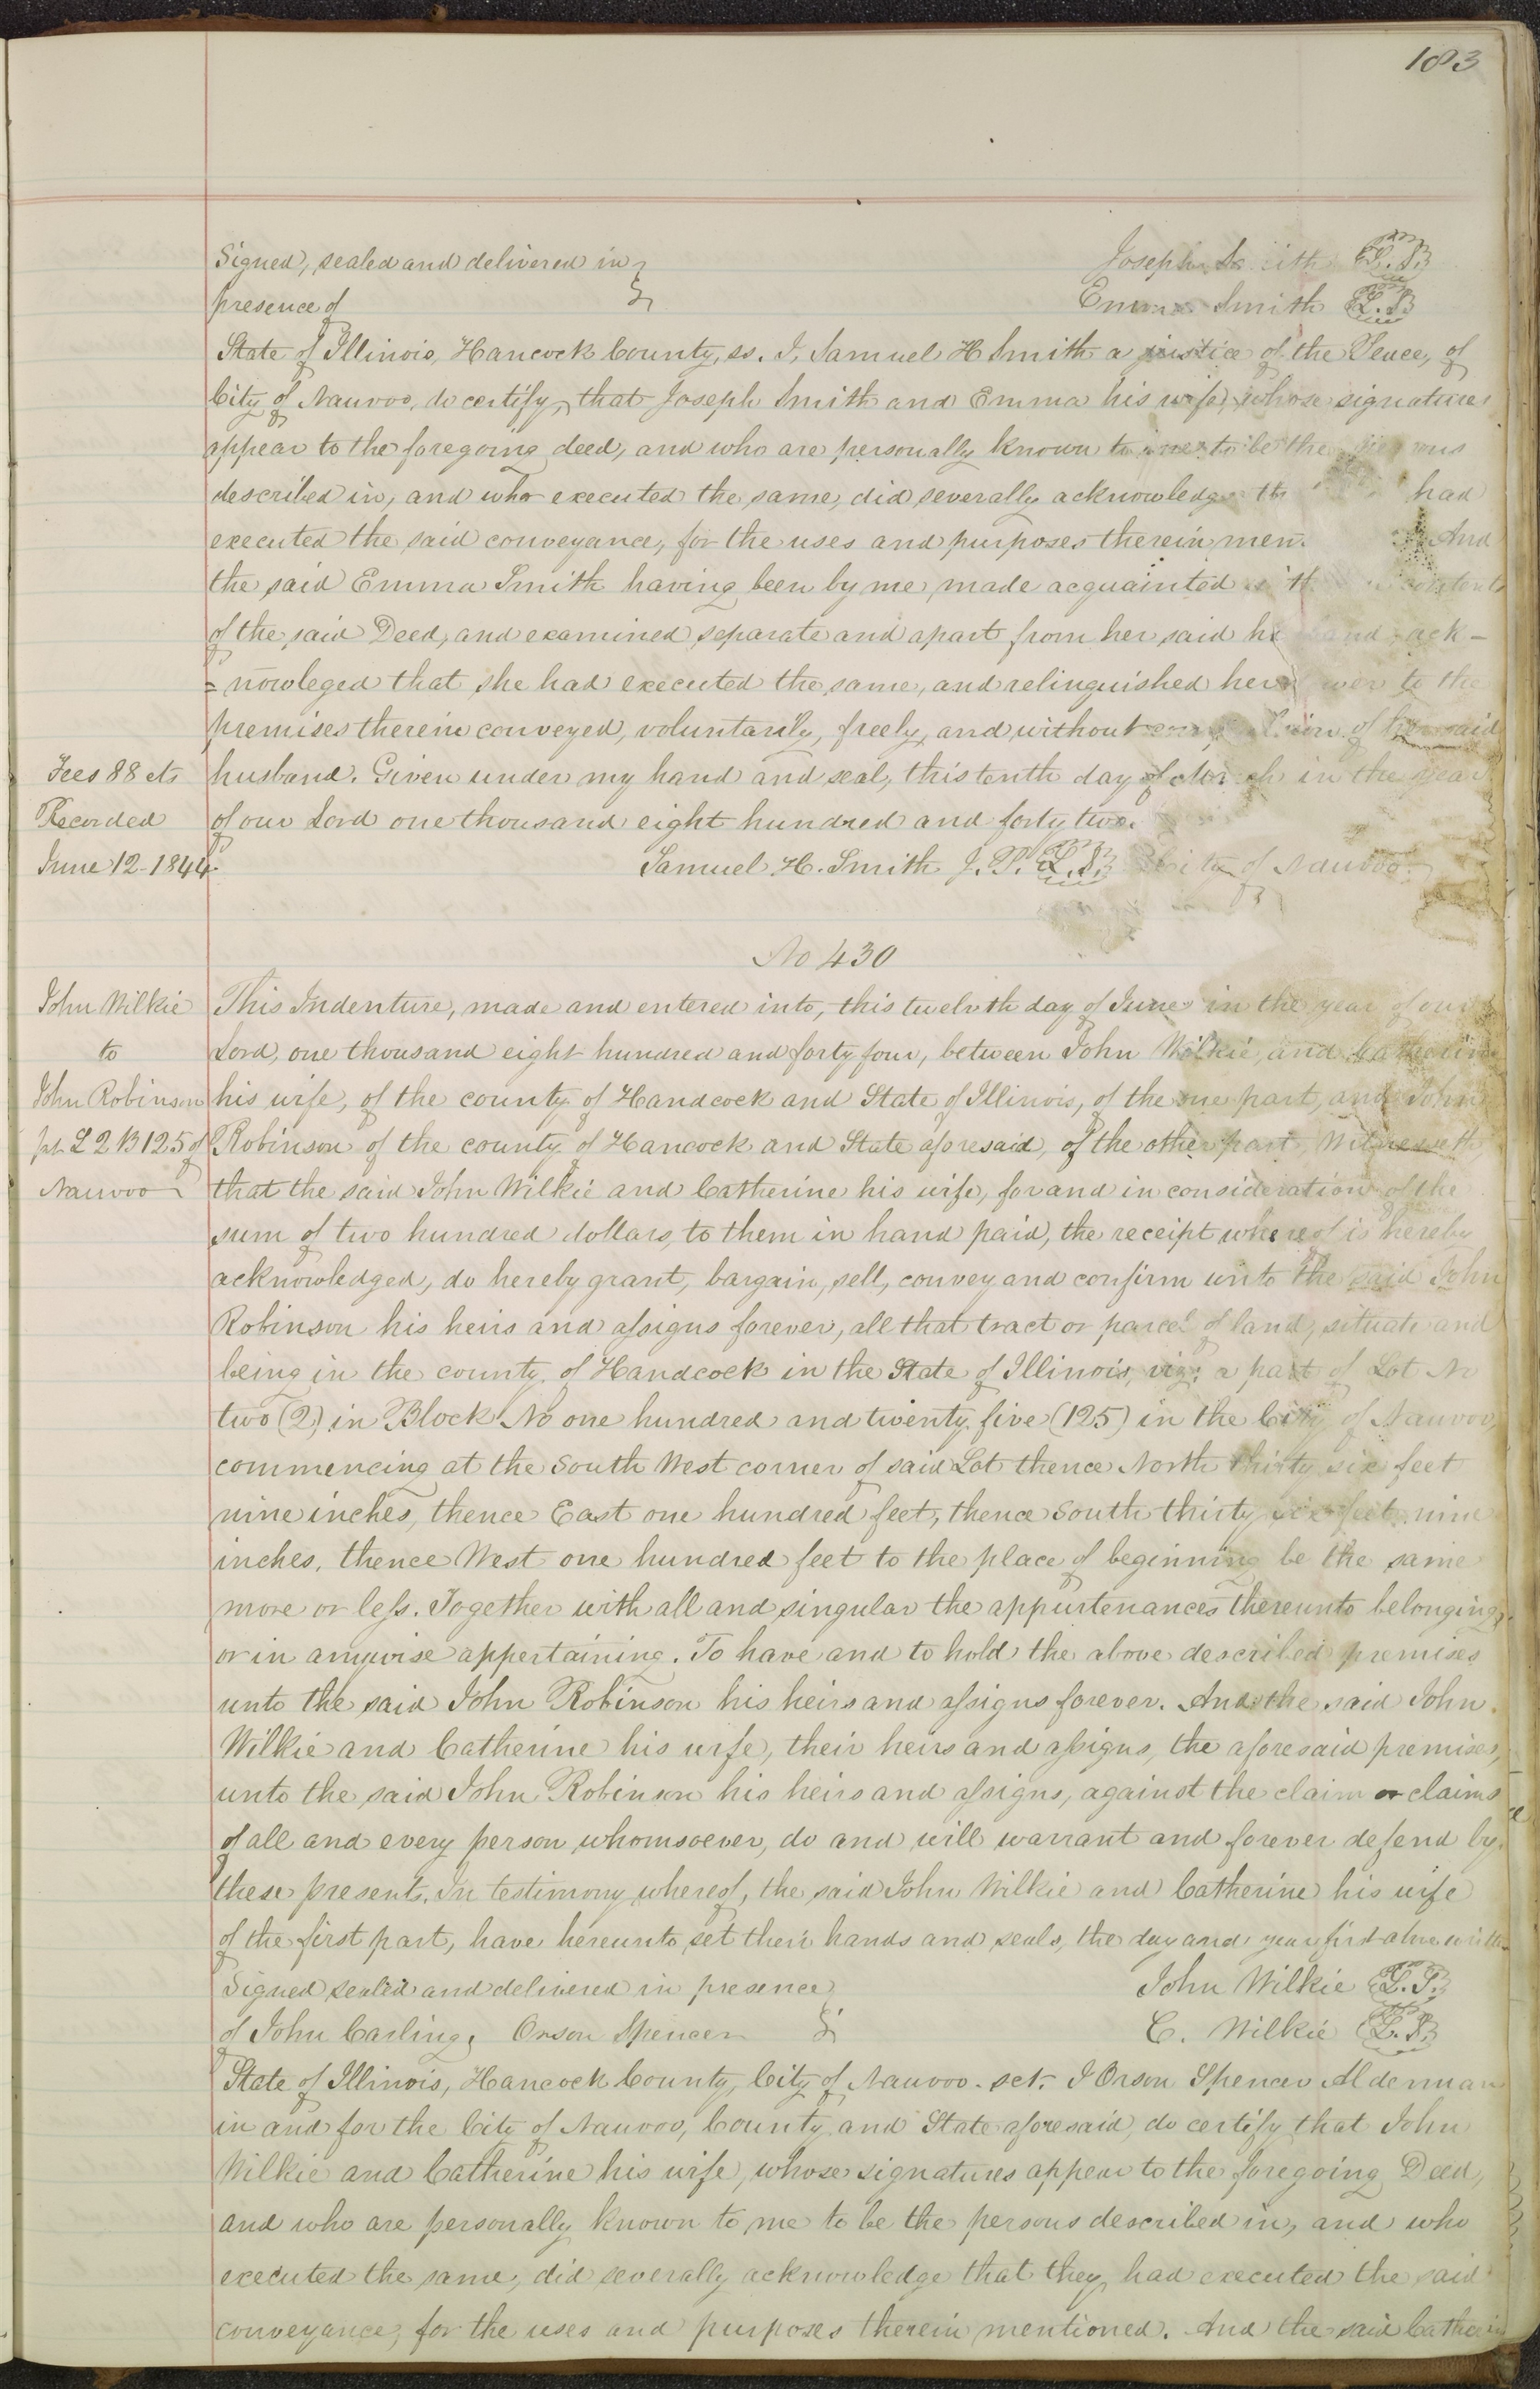 183
Signed, sealed and delivered in
presence of
Joseph Smith L.S.
Emma Smith L.S.
State of Illinois, Hancock County, ss. I, Samuel H Smith a justice of the Peace, of
City of Nauvoo, do certify, that Joseph Smith and Emma his wife, whose signatures
appear to the foregoing deed, and who are personally known to me to be the persons
described in, and who executed the same, did severally acknowledge th had
executed the said conveyance, for the uses and purposes therein men And
the said Emma Smith having been by me made acquainted with contents
of the said Deed, and examined separate and apart from her said husband ack-
=nowleged that she had executed the same, and relinquished her dower to the
premises therein conveyed, voluntarily, freely, and without compulsion of her said
Fees 88 cts
husband. Given under my hand and seal, this tenth day of March in the year
Recorded
of our Lord one thousand eight hundred and forty two.
June 12-1844.
Samuel H. Smith J.P. L.S. City of Nauvoo.
No 430
John Wilkie
to
John Robinson
pt L 2 B 125 of
Nauvoo
This Indenture, made and entered into, this twelvth day of June in the year of our
Lord, one thousand eight hundred and forty four, between John Wilkie, and Catherine
his wife, of the county of Handcock and State of Illinois, of the one part, and John
Robinson of the county of Hancock and State aforesaid, of the other part, Witnesseth,
that the said John Wilkie and Catherine his wife, for and in consideration of the
sum of two hundred dollars, to them in hand paid, the receipt whereof is hereby
acknowledged, do hereby grant, bargain, sell, convey and confirm unto the said John
Robinson his heirs and assigns forever, all that tract or parcel of land, situate and
being in the county of Handcock in the State of Illinois, viz: a part of Lot No
two (2) in Block No one hundred and twenty five (125) in the City of Nauvoo,
commencing at the South West corner of said Lot thence North thirty six feet
nine inches, thence East one hundred feet, thence South thirty six feet nine
inches, thence West one hundred feet to the place of beginning be the same
more or less. Together with all and singular the appurtenances thereunto belonging,
or in anywise appertaining. To have and to hold the above described premises
unto the said John Robinson his heirs and assigns forever. And the said John
Wilkie and Catherine his wife, their heirs and assigns, the aforesaid premises,
unto the said John Robinson his heirs and assigns, against the claim or claims
of all and every person whomsoever, do and will warrant and forever defend by
these presents. In testimony whereof, the said John Wilkie and Catherine his wife
of the first part, have hereunto set their hands and seals, the day and year first above written
Signed sealed and delivered in presence
of John Carling, Orson Spencer
John Wilkie L.S.
C. Wilkie L.S.
State of Illinois, Hancock County, City of Nauvoo. sct. I Orson Spencer Alderman
in and for the City of Nauvoo, County and State aforesaid, do certify that John
Wilkie and Catherine his wife, whose signatures appear to the foregoing Deed,
and who are personally known to me to be the persons described in, and who
executed the same, did severally acknowledge that they had executed the said
conveyance, for the uses and purposes therein mentioned. And the said Catherine